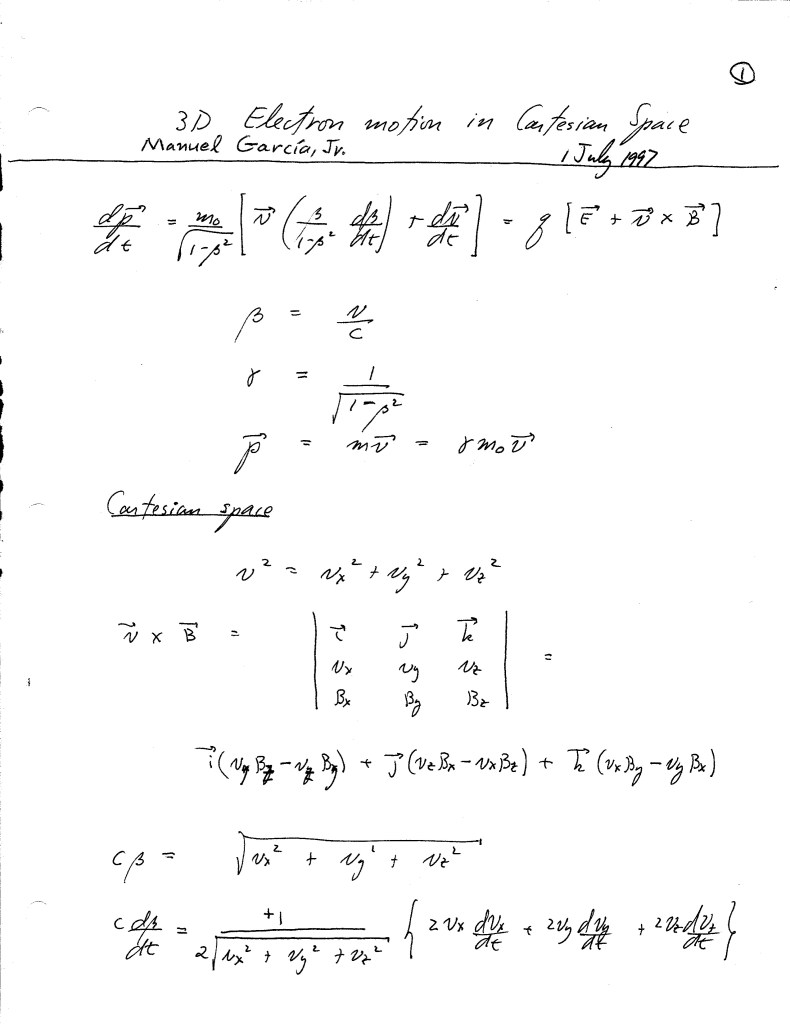 ①
3D Electron motion in Cartesian Space
Manuel García, Jr. 1 July 1997
d\vec{p}/dt = m₀/√(1-β²) [ \vec{v} ( β/(1-β²) dβ/dt ) + d\vec{v}/dt ] = q [ \vec{E} + \vec{v} × \vec{B} ]
β = v/c
γ = 1/√(1-β²)
\vec{p} = m\vec{v} = γ m₀ \vec{v}
Cartesian space
v² = vx² + vy² + vz²
\vec{v} × \vec{B} = | \vec{i} \vec{j} \vec{k} |
| vx vy vz | =
| Bx By Bz |
\vec{i} (vy Bz - vz By) + \vec{j} (vz Bx - vx Bz) + \vec{k} (vx By - vy Bx)
cβ = √(vx² + vy² + vz²)
c dβ/dt = +1/(2√(vx² + vy² + vz²)) { 2vx dvx/dt + 2vy dvy/dt + 2vz dvz/dt }